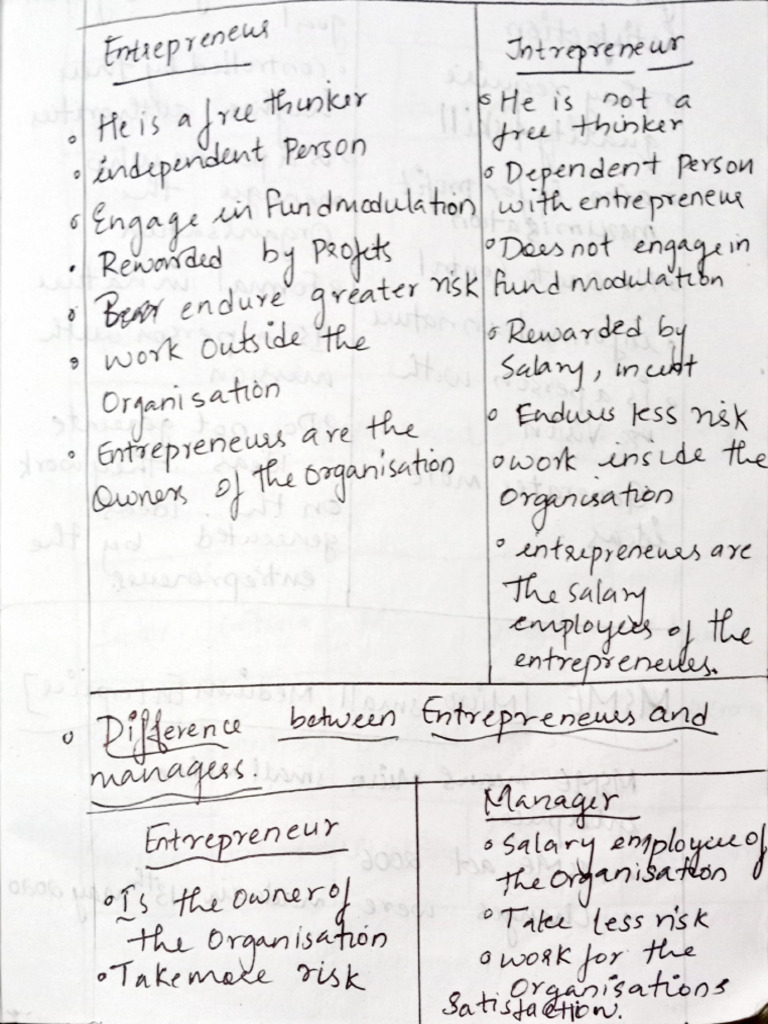 Entrepreneur
He is a free thinker
independent Person
Engage in Fundmodulation
Rewarded by Profits
endure greater risk
work outside the
Organisation
Entrepreneurs are the
Owners of the Organisation
Intrepreneur
He is not a
free thinker
Dependent Person
with entrepreneur
Does not engage in
fund modulation
Rewarded by
Salary,
Endures less risk
work inside the
Organisation
entrepreneurs are
The salary
employees of the
entrepreneures.
Difference between Entrepreneurs and
managers.
Entrepreneur
Is the owner of
the Organisation
Take more risk
Manager
Salary employee of
the Organisation
Take less risk
work for the
Organisations
Satisfaction.